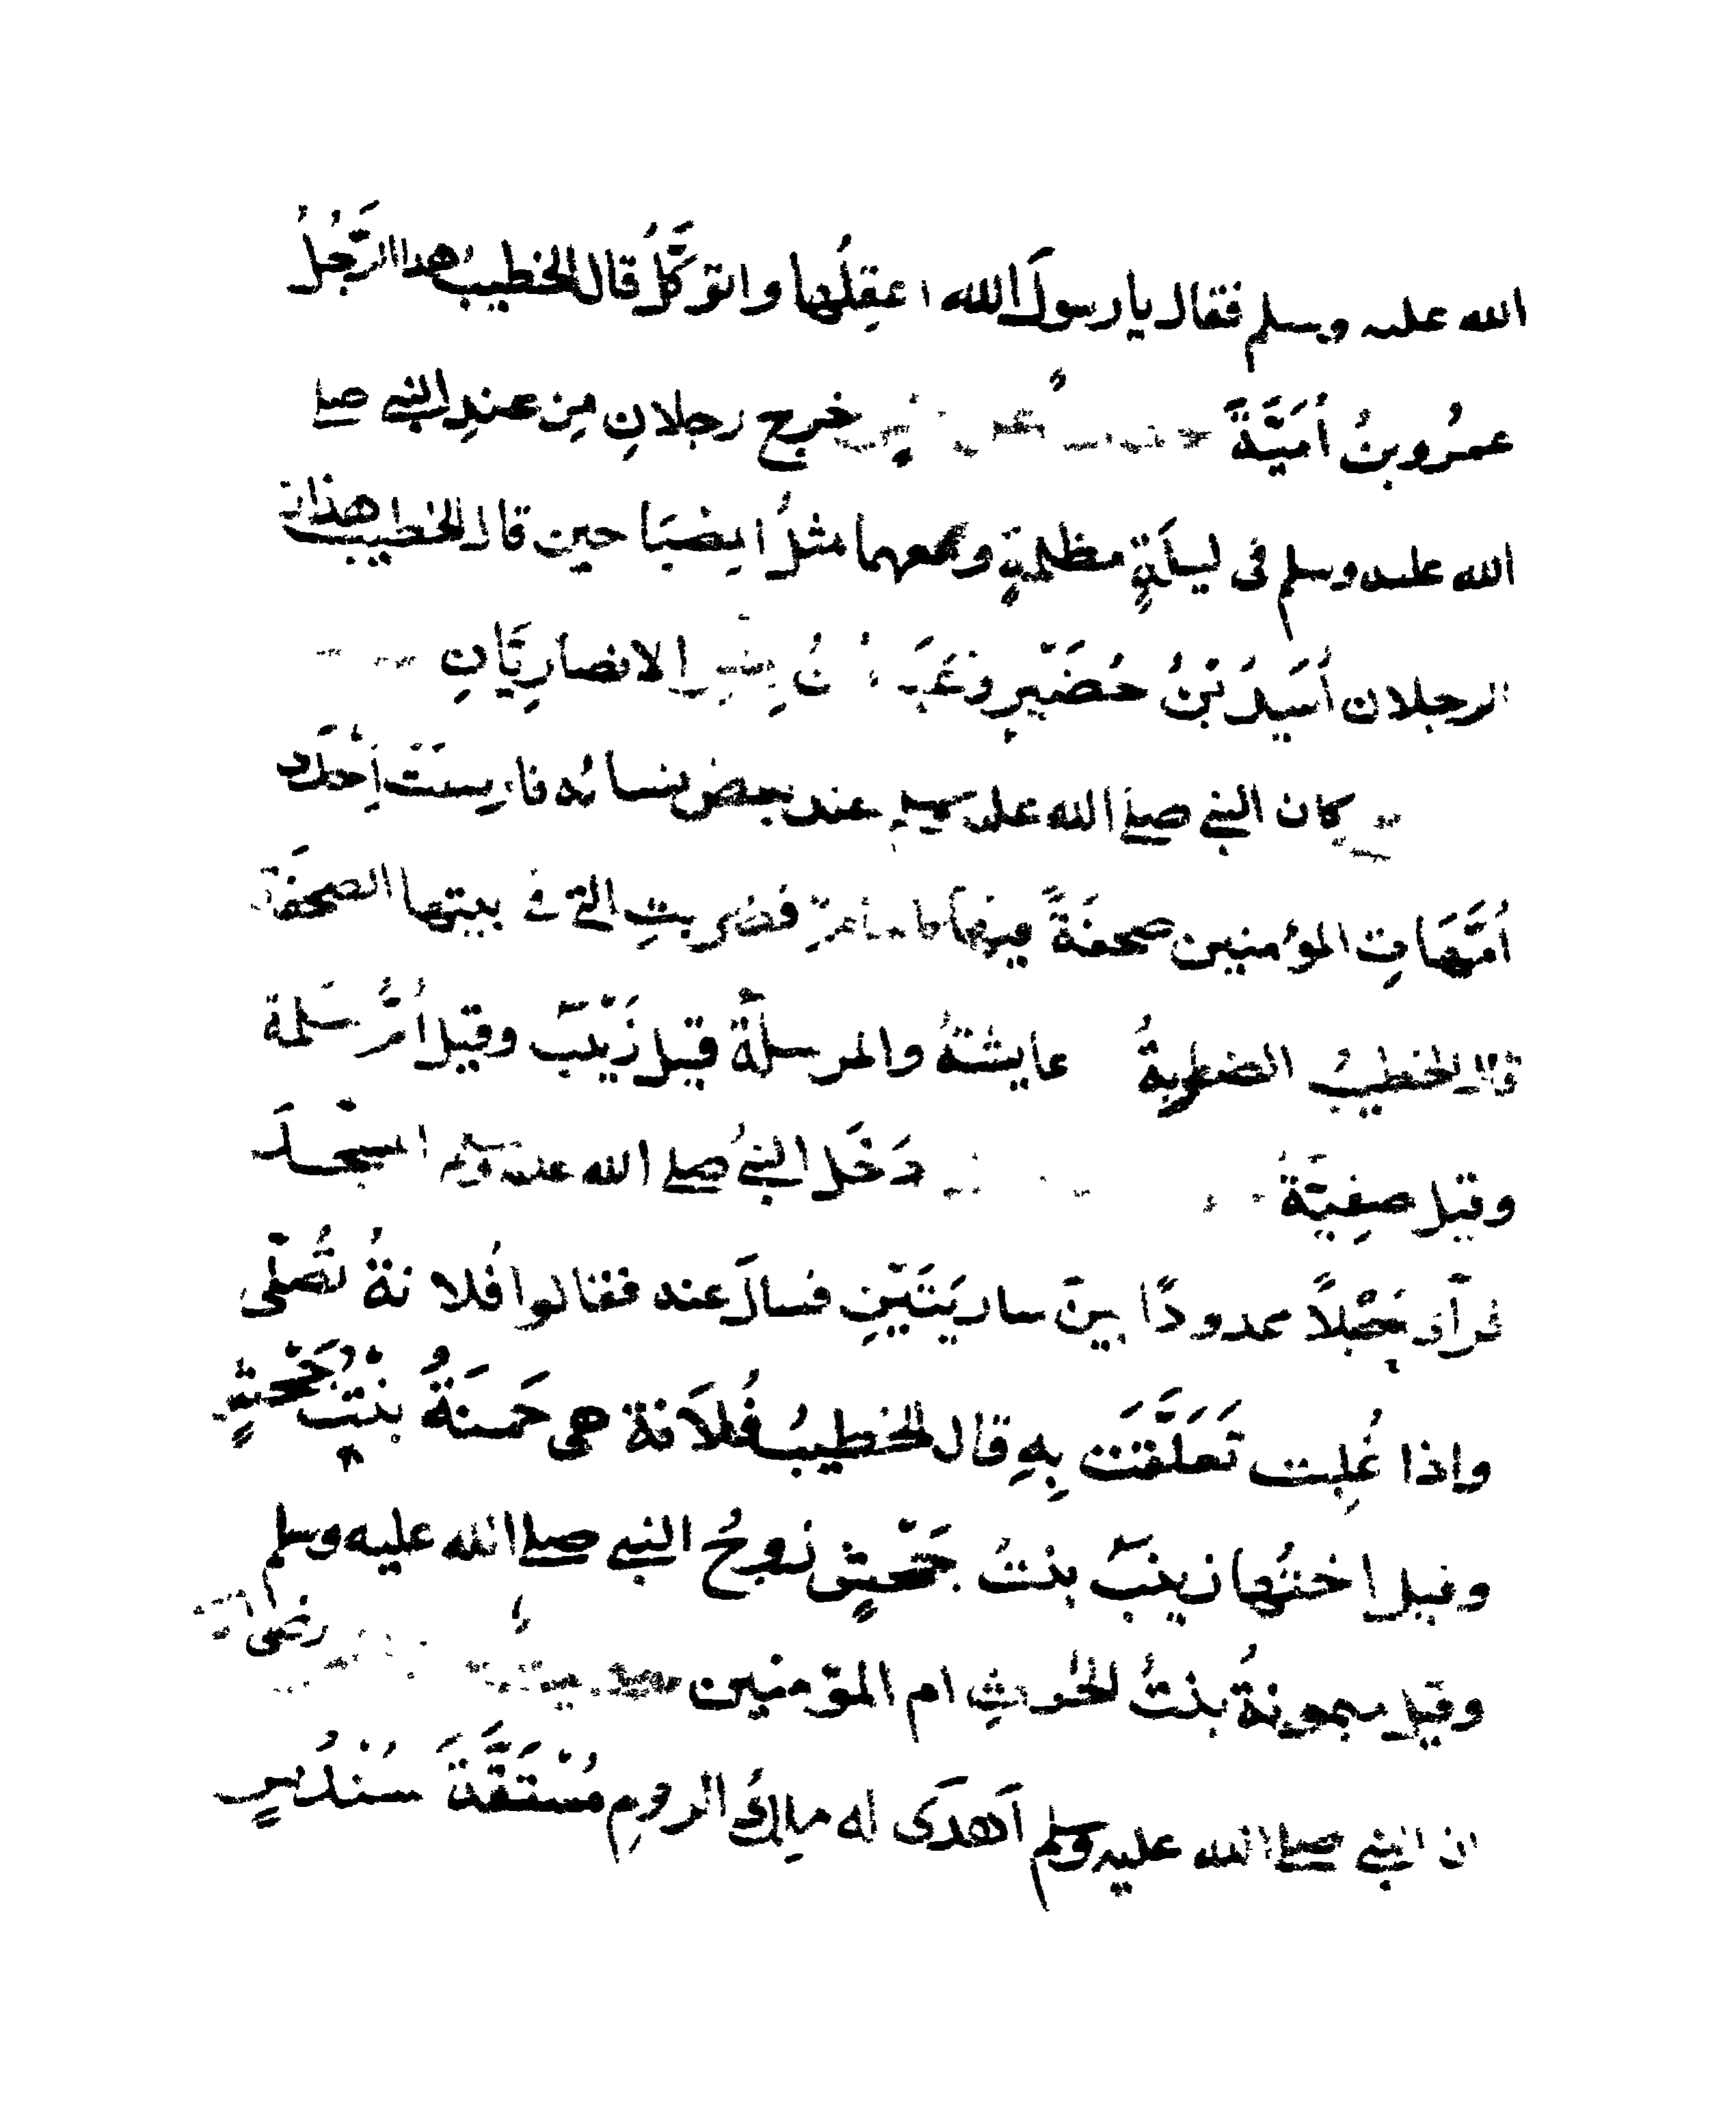 الله عليه وسلم فقال يا رسولَ الله اعقِلُها واتوكَّلُ قال الخطيبُ هذا الرَّجُلُ
عمرُو بنُ أُمَيَّةَ خرج رجلانِ مِن عندِ النبي صلى
الله عليه وسلم في ليلَةٍ مظلمةٍ ومعهما مثلُ المِصْبَاحين قال الخطيب هذان
الرجلان أُسَيدُ بْنُ حُضَيْرٍ وعَبَّادُ بنُ بِشرٍ الانصارِيَّانِ
كان النبي صلى الله عليه وسلم عند بعض نسائه فارسلَتْ إِحْدَى
أُمَّهَاتِ المؤمنين صحفَةً فيها طعامٌ فضربتِ التي في بيتها الصحفَة
قال الخطيبُ الضاربةُ عايشةُ والمرسلَةُ قيل زَيْنَب وقيل أُمُّ سَلمة
وقيل صفِيَّةُ دَخَل النبيُ صلى الله عليه وسلم المسجِدَ
فرآى حَبْلاً ممدودًا بينَ ساريَتَيْنِ فسالَ عنه فقالوا فُلانةُ تُصَلّي
واذا غُلِبت تَعَلَّقَت بِهِ قال الخطيبُ فُلَانة هي حَمنَةُ بنْتُ جَحْشٍ
وقيل اختُها زينبُ بنتُ جَحْشٍ زوجُ النبي صلى الله عليه وسلم
وقيل ميمونةُ بنتُ الحُرثِ ام المؤمنين رضى الله
ان النبي صلى الله عليه وسلم اَهدَى له ملِكُ الرومِ مُسْتَقَّةَ سُنْدُسٍ